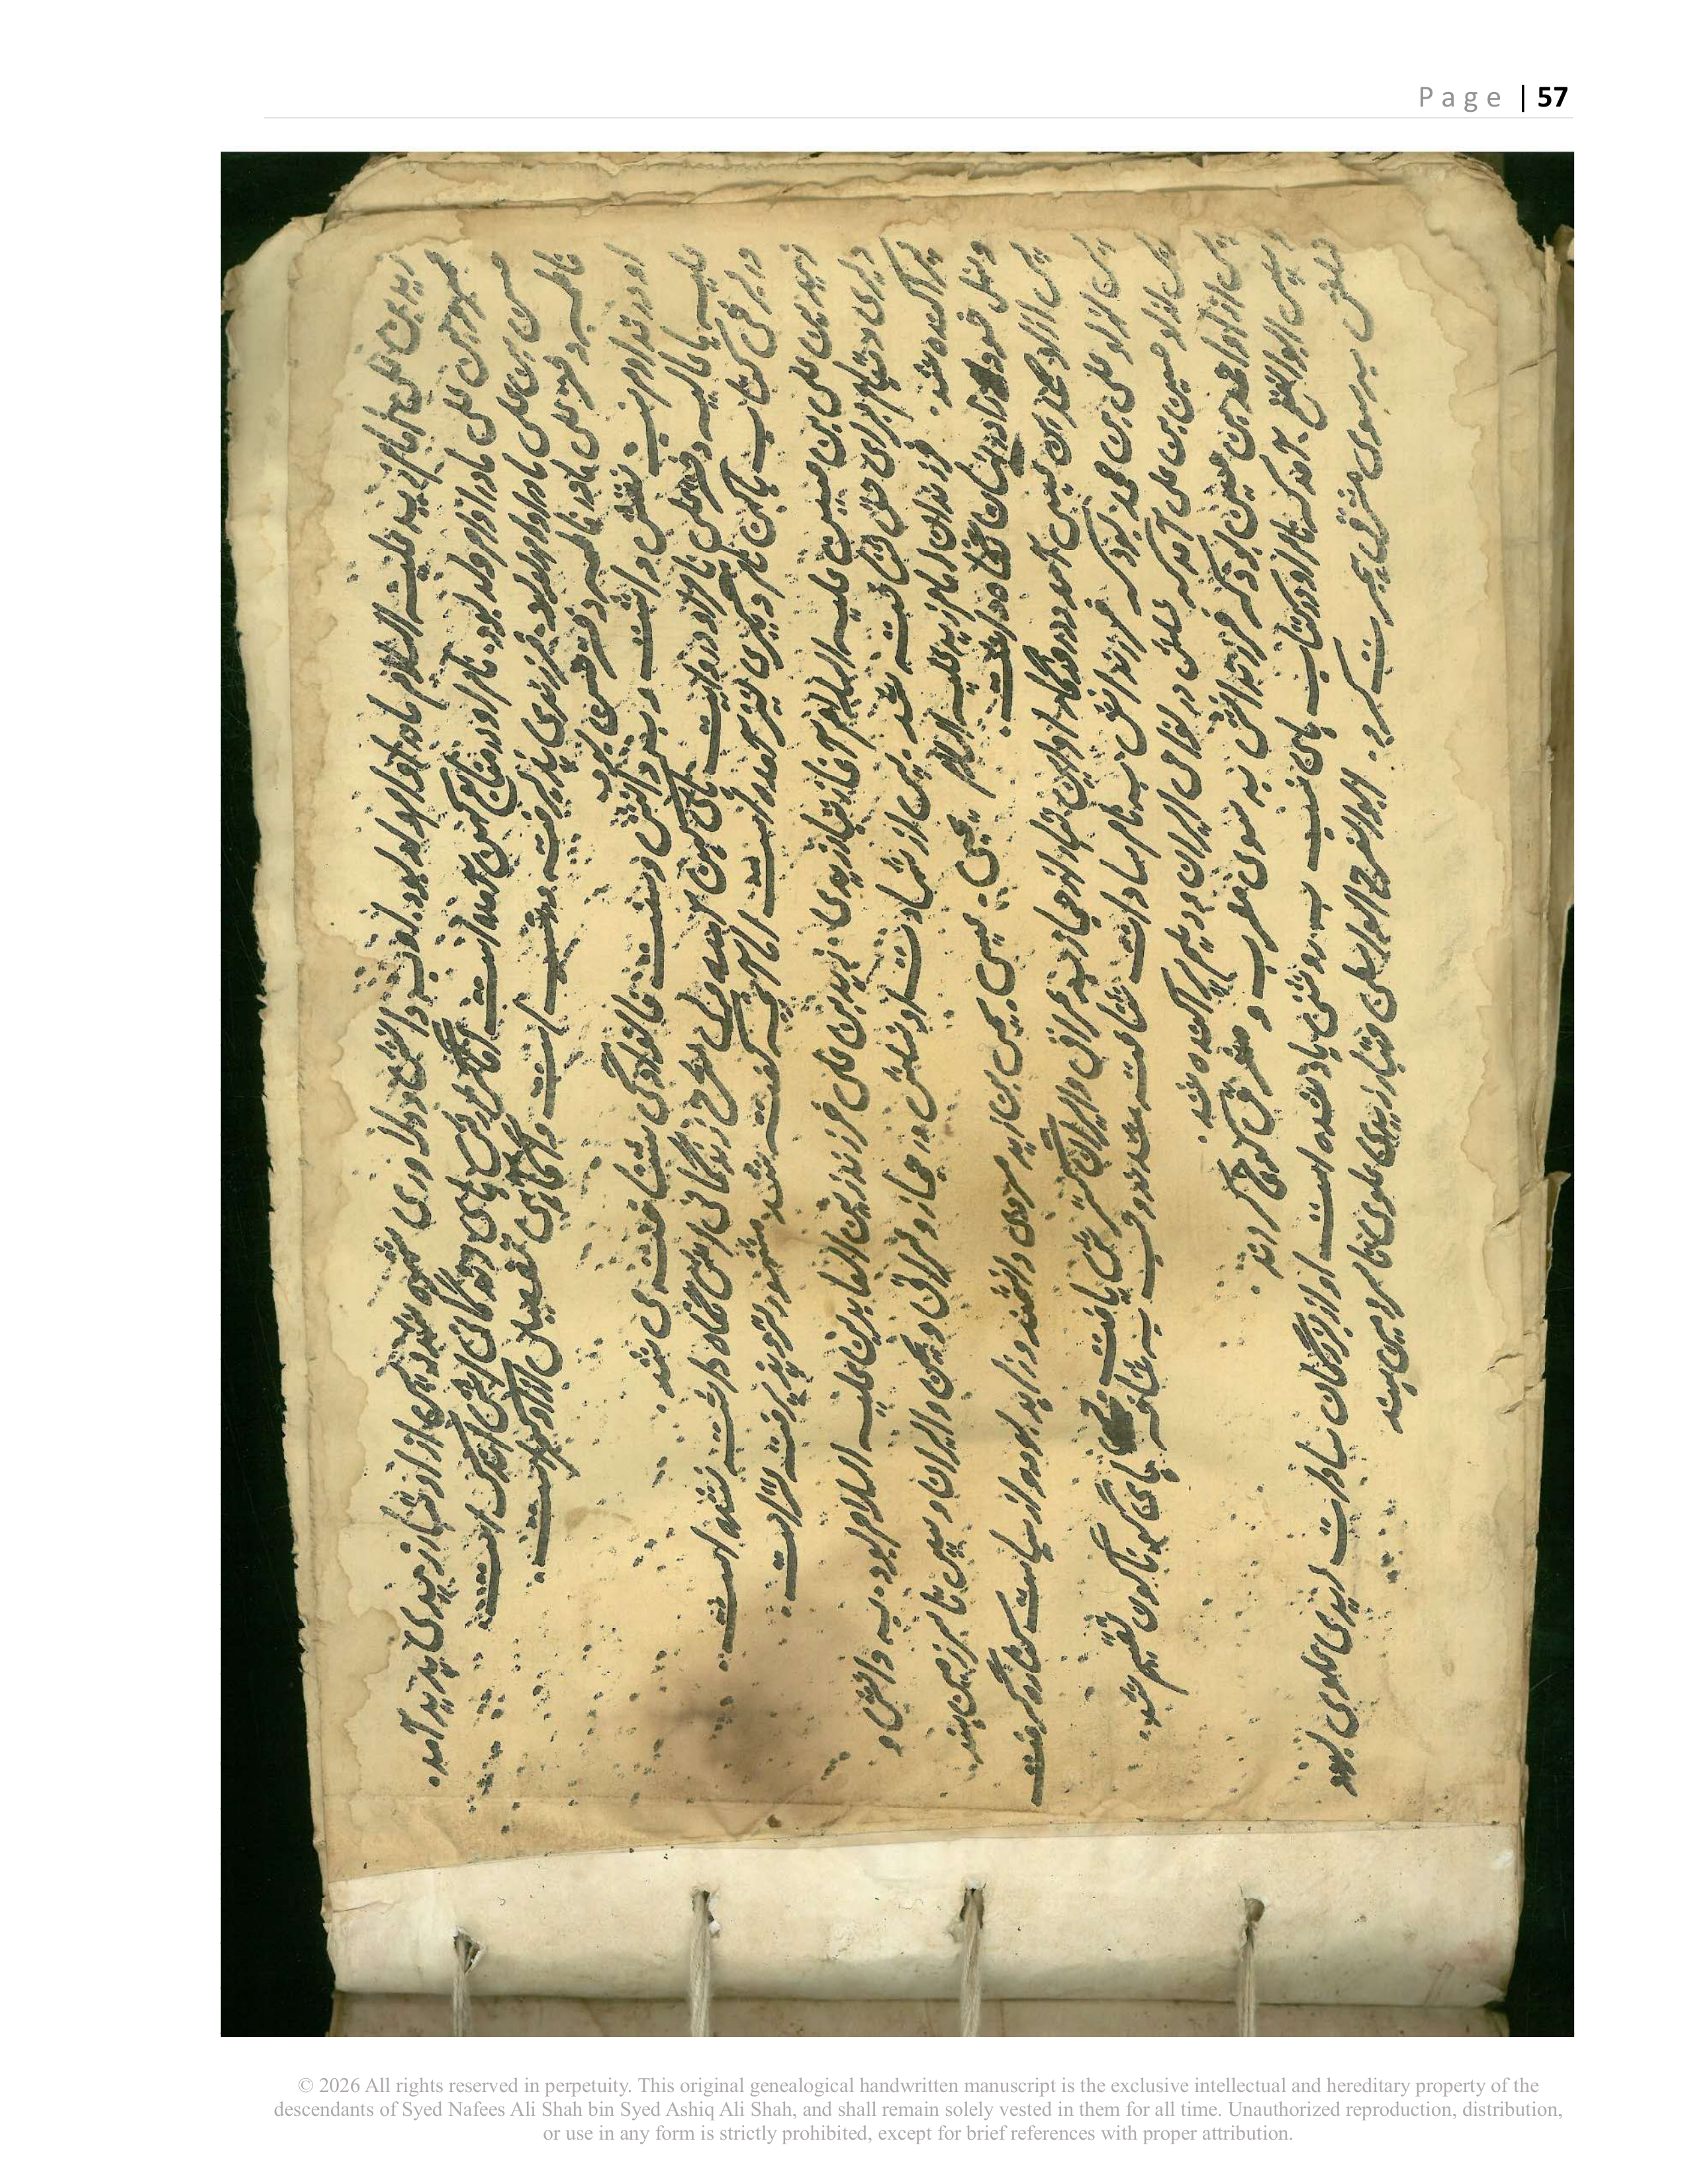 زید بن علی امام زید علیه السلام مادر او ام ولد بود. او به دانش و دلاوری شهره شد و پس از او تبار زیدی پدید آمد.
عمر بن علی مادر او ام ولد بود نام او در منابع کهن آمده است اما گزارش های زندگانی اش اندک است.
حسن بن علی مادر او ام ولد. فرزندی پذیرفته منتسب است و آگاهی تفصیلی از او کم است.
فاطمه دختر علی مادر فاطمه دختر حسن
او در تداوم نسب نقش داشت و به دانش و خانوادگی شناخته می شد.
علیه یا عالیه دختر علی نام او در روایت های کهن آمده ولی شرح زندگانی اش نگاه داشته نشده است.
در برخی کتاب نام دیگری نیز آمده است اما آنچه گفته شد مشهورتر و پذیرفته تر است.
زید بن علی بن حسین علیه السلام آغاز تبار زیدی. زید بن علی فرزند زین العابدین علیه السلام بود. به دانش و
دلیری و قیام برای حق شناخته شد. پس از شهادت او نسلش در حجاز و عراق و یمن و ایران و سپس تا سرزمین هند
پراکنده شد. فرزندان امام زید علیه السلام یحیی. عیسی. بن زید مردی دانشمند و زاهد بود و از سیاست کناره گرفت
و نسل خود را در نهان نگاه داشت.
پس از او محمد بن عیسی آمد و در روزگار او این تبار از حجاز به عراق و ایران گسترش یافت.
پس از او علی بن محمد بود که فرزندانش به نام سادات شناخته شدند و به شاخه های گوناگون تقسیم شد.
پس از او حسین بن علی آمد که نسلش در نواحی ایران و دیلم پراکنده شد.
پس از او احمد بن حسین بود که فرزندانش به سوی مغرب و مشرق کوچ کردند.
سپس ابو الفتح آمد که نام او در کتاب های نسب به روشنی یاد شده است او از بزرگان سادات زیدی علوی بود
نسلش به سوی مشرق هجرت کرد. ابو الفرح الواسطی تبار زیدی علوی تا سرزمین هند
Page | 57
© 2026 All rights reserved in perpetuity. This original genealogical handwritten manuscript is the exclusive intellectual and hereditary property of the
descendants of Syed Nafees Ali Shah bin Syed Ashiq Ali Shah, and shall remain solely vested in them for all time. Unauthorized reproduction, distribution,
or use in any form is strictly prohibited, except for brief references with proper attribution.